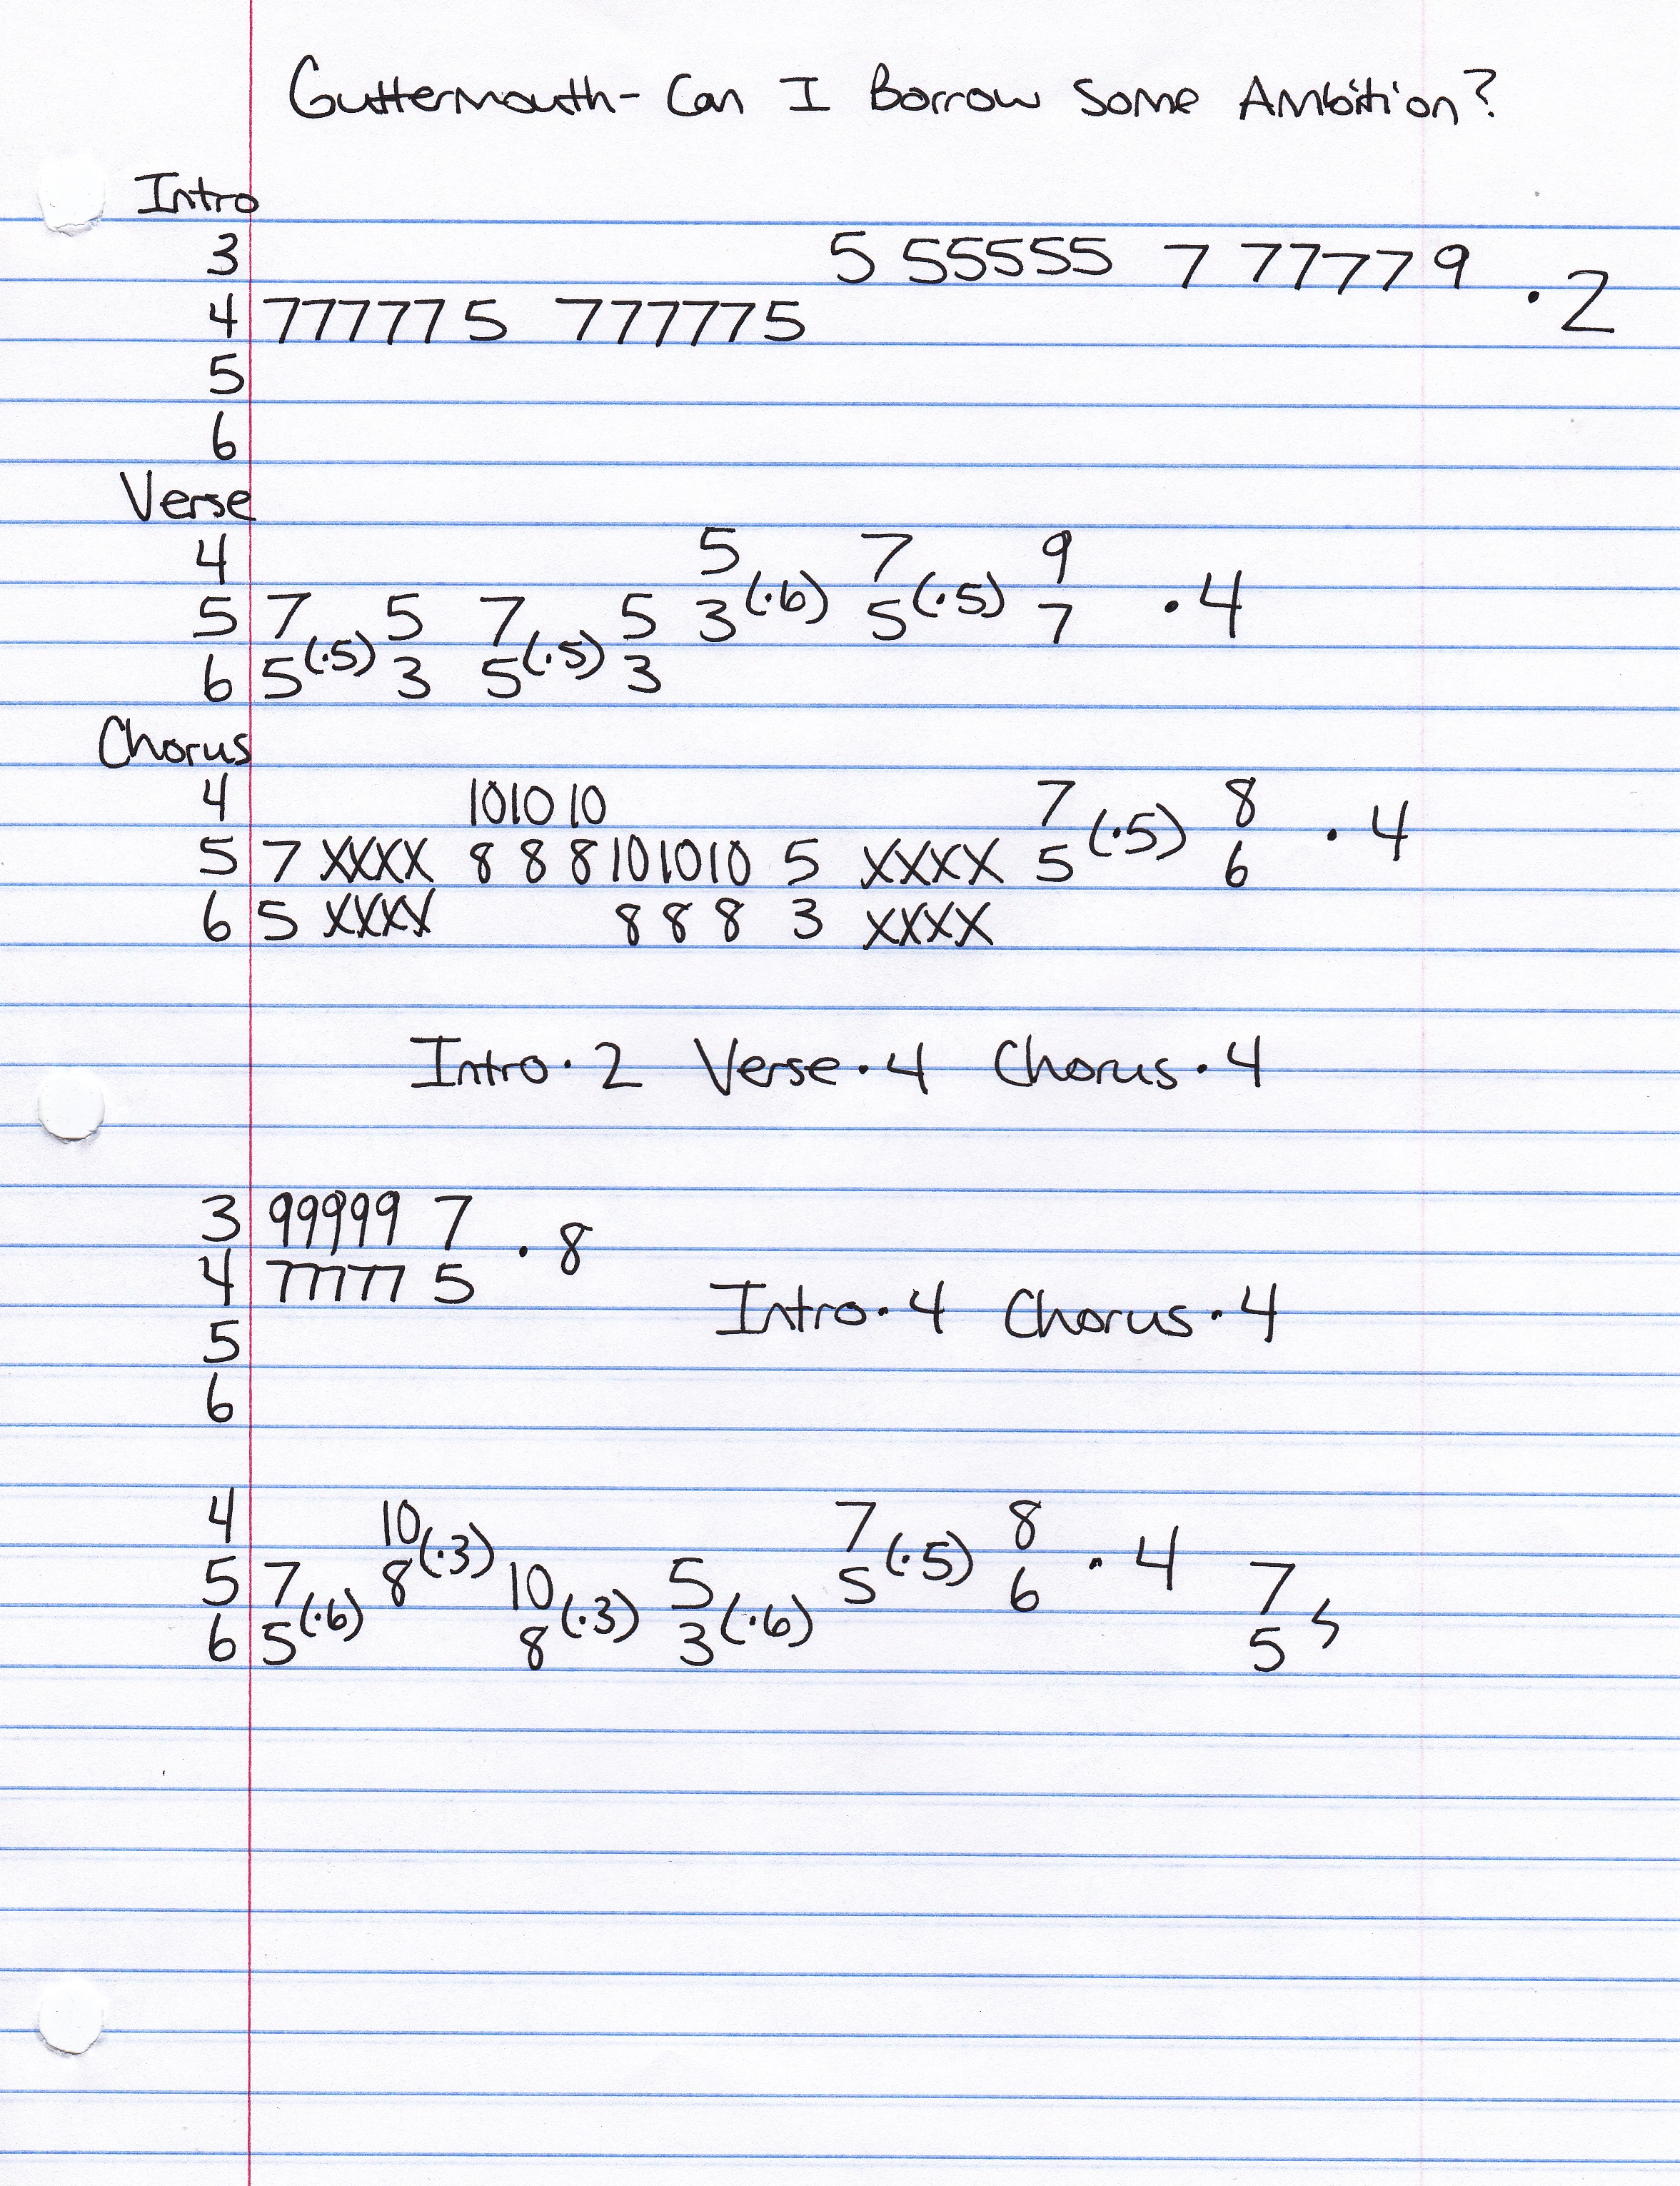 Guttermouth - Can I Borrow Some Ambition?
Intro
3 5 55555 7 77777 9 · 2
4 77777 5 777775
5
6
Verse
4 5 7 9
5 7 5 7 5 3 (·6) 5 (·5) 7 · 4
6 5 (·5) 3 5 (·5) 3
Chorus
4 10 10 10 7 8
5 7 XXXX 8 8 8 10 10 10 5 XXXX 5 (·5) 6 · 4
6 5 XXXX 8 8 8 3 XXXX
Intro · 2 Verse · 4 Chorus · 4
3 99999 7 · 8
4 77777 5
Intro · 4 Chorus · 4
5
6
4 10 7 8
5 7 8 (·3) 10 5 5 (·5) 6 · 4 7
6 5 (·6) 8 (·3) 3 (·6) 5